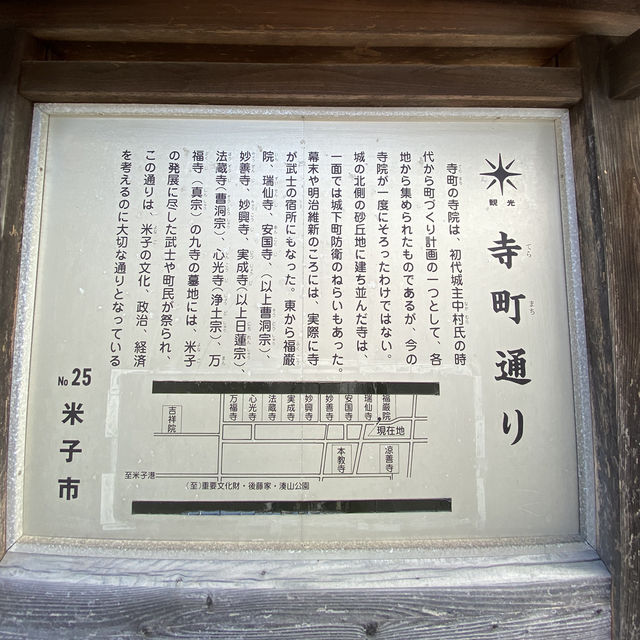 観光
寺町通り
てら まち
寺町の寺院は、初代城主中村氏の時
代から町づくり計画の一つとして、各
地から集められたものであるが、今の
寺院が一度にそろったわけではない。
城の北側の砂丘地に建ち並んだ寺は、
一面では城下町防衛のねらいもあった。
幕末や明治維新のころには、実際に寺
が武士の宿所にもなった。東から福厳
院、瑞仙寺、安国寺、(以上曹洞宗)、
妙善寺、妙興寺、実成寺(以上日蓮宗)、
法蔵寺(曹洞宗)、心光寺(浄土宗)、万
福寺(真宗)の九寺の墓地には、米子
の発展に尽した武士や町民が祭られ、
この通りは、米子の文化、政治、経済
を考えるのに大切な通りとなっている
福厳院
瑞仙寺
安国寺
妙善寺
妙興寺
実成寺
法蔵寺
心光寺
万福寺
吉祥院
現在地
凉善寺
本教寺
至米子港
(至)重要文化財・後藤家・湊山公園
No 25
米子市